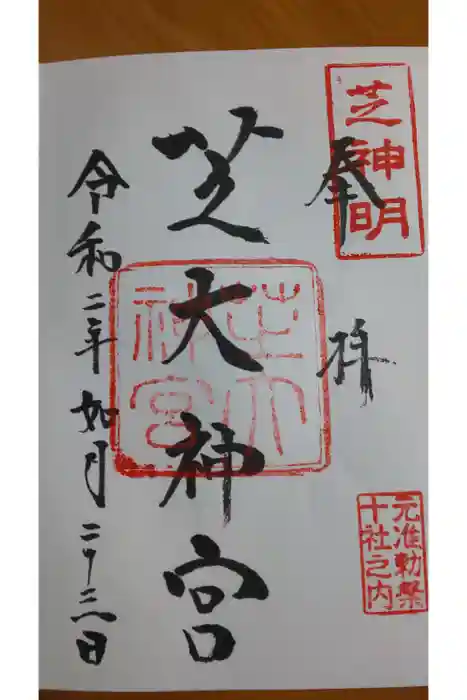 奉拝
芝神明
元准勅祭
十社之内
芝大神宮
芝大
神宮
令和二年如月二十三日